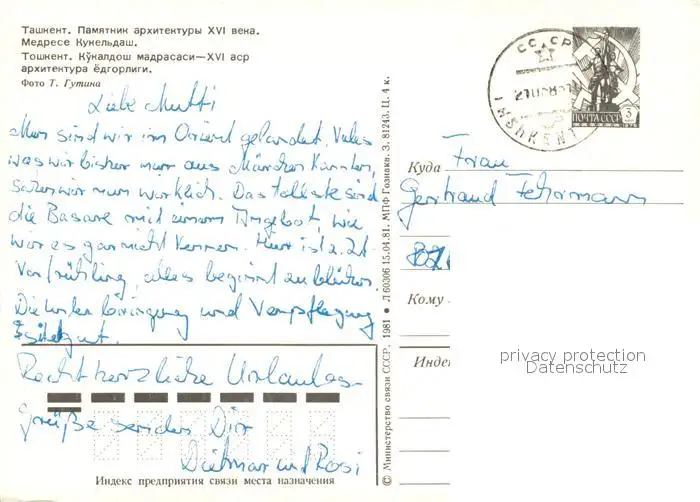 Ташкент. Памятник архитектуры XVI века.
Медресе Кукельдаш.
Тошкент. Кўкалдош мадрасаси—XVI аср
архитектура ёдгорлиги.
Фото Т. Гутина
Liebe Mutti
Nun sind wir im Orient gelandet. Vieles
was wir bisher nur aus Märchen kannten,
sehen wir nun wirklich. Das tollste sind
die Basare mit einem Angebot, wie
wir es gar nicht kennen. Hier ist z. Zt.
Vorfrühling, alles beginnt zu blühen.
Die Unterbringung und Verpflegung
ist gut.
Recht herzliche Urlaubs-
grüße senden Dir
Dietmar und Rosi
Индекс предприятия связи места назначения
© Министерство связи СССР, 1981 • Л 60306 15.04.81. МПФ Гознака. З. 81243. Ц. 4 к.
СССР
TASHKENT
ПОЧТА СССР
3
Куда
Frau
Gertraud Fehrmann
Кому
Индекс
privacy protection
Datenschutz